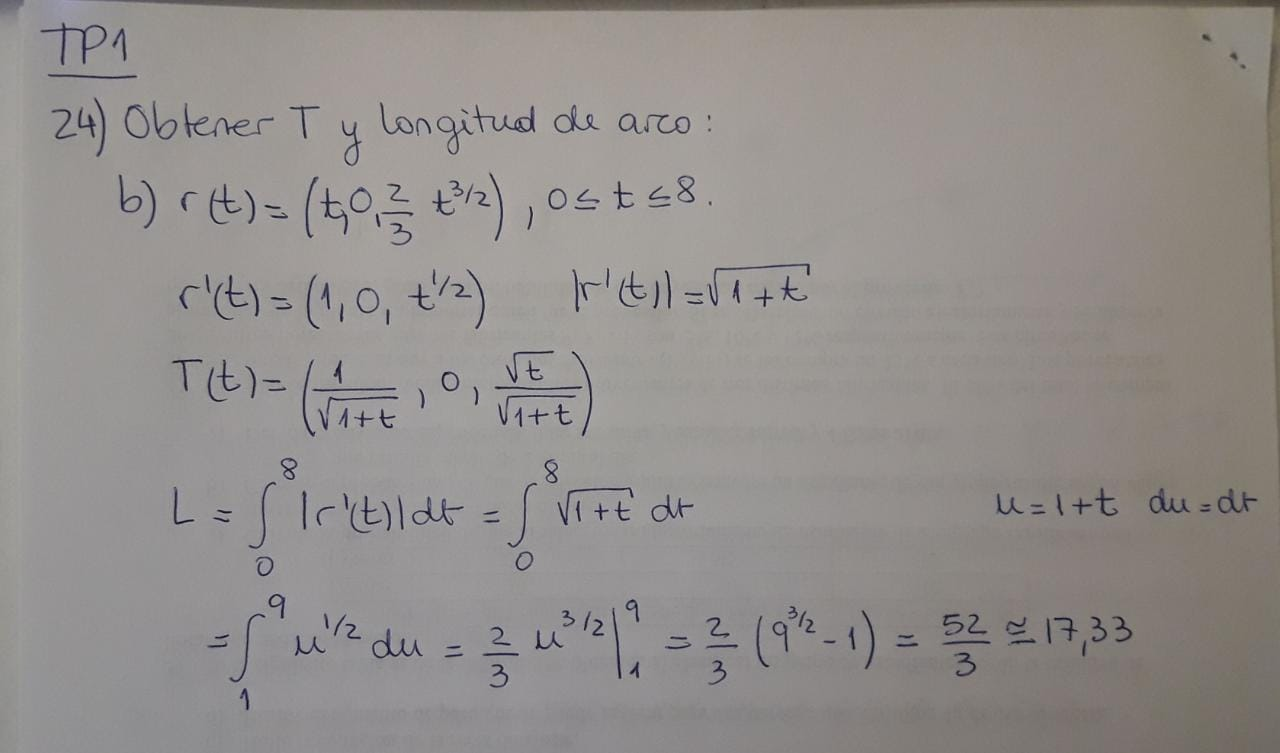 TP1
24) Obtener T y longitud de arco:
b) r(t) = (t, 0, 2/3 t^3/2), 0 ≤ t ≤ 8.
r'(t) = (1, 0, t^1/2) |r'(t)| = √(1+t)
T(t) = (1/√(1+t), 0, √t/√(1+t))
L = ∫₀⁸ |r'(t)| dt = ∫₀⁸ √(1+t) dt u = 1+t du = dt
= ∫₁⁹ u^1/2 du = 2/3 u^3/2 |₁⁹ = 2/3 (9^3/2 - 1) = 52/3 ≅ 17,33